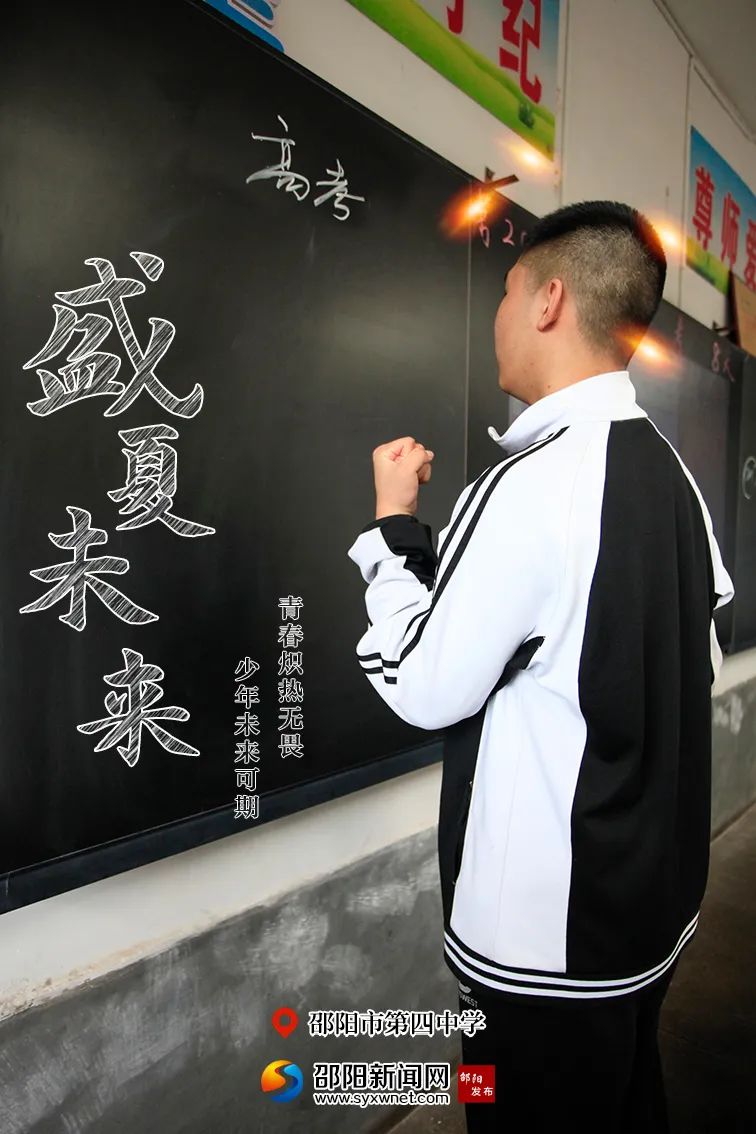 高考
尊师爱
盛夏
未来
青春炽热无畏
少年未来可期
邵阳市第四中学
邵阳新闻网
www.syxwnet.com
邵阳
发布